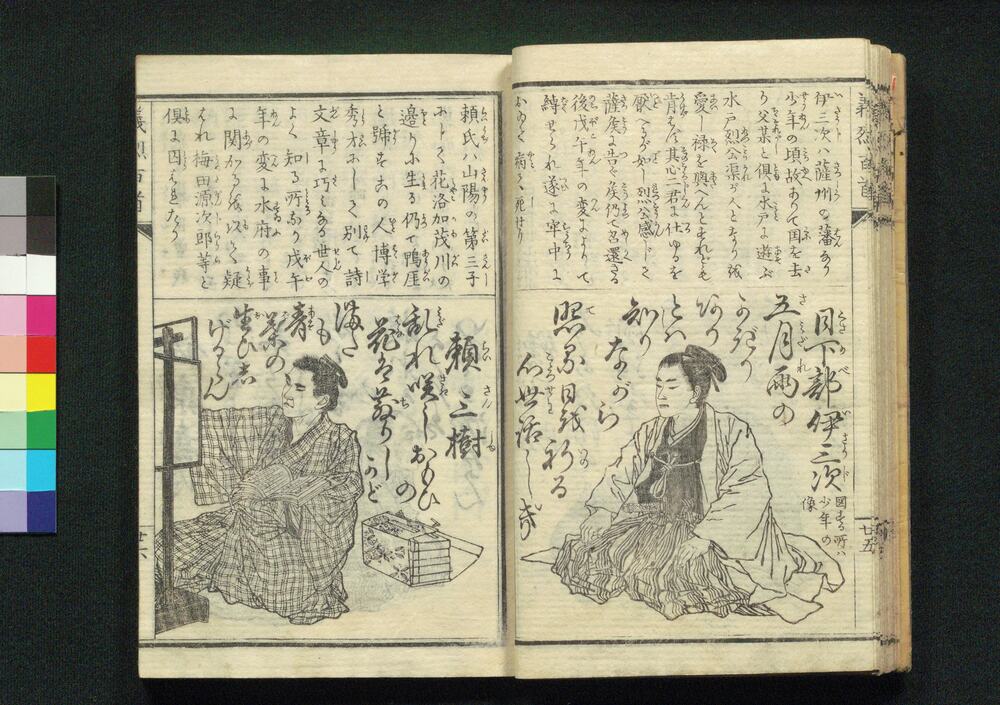 義烈百首
伊三次ハ薩州の藩なり
少年の頃故ありて国を去
り父某と倶に水戸に遊ぶ
水戸烈公渠が人となりを
愛し禄を與へんとすれども
肯んぜず其心二君に仕ゆるを
厭へるが如し烈公感じて
薩侯に告ぐ侯仍て召還さる
後戊午年の変によりて
縛せられ遂に牢中に
おゐて病て死せり
日下部伊三次
図する所ハ
少年の
像
五月雨の
知りながら
照る日を祈る
心世話しき
廿五
頼氏ハ山陽の第三子
にして花洛加茂川の
邉りに生る仍て鴨厓
と號すこの人博学
秀才にして別て詩
文章に巧ミなる世人の
よく知る所なり戊午
年の変に水府の事
に関かるを以て疑
はれ梅田源次郎等と
倶に囚はれたり
頼三樹
乱れ咲し
花ハ散りしかど
まだ
も
青
葉の
生ひし
げるらん
義烈百首
廿六